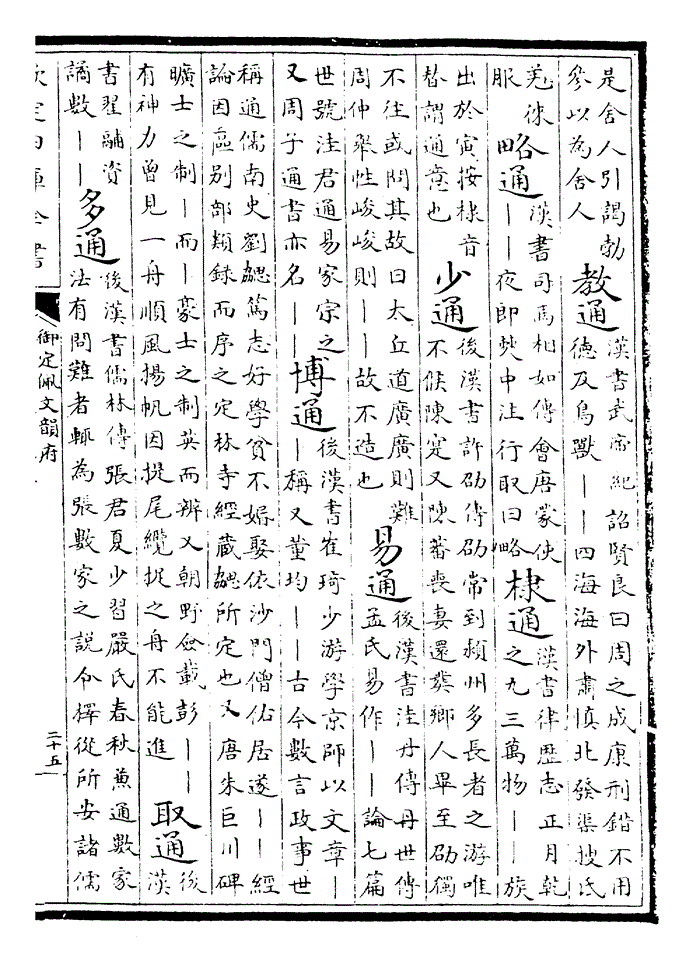 是舍人引謁勃
參以為舍人
教通
漢書武帝紀詔賢良曰周之成康刑錯不用
德及鳥獸——四海海外肅慎北發渠搜氐
羌徠
服
略通
漢書司馬相如傳會唐蒙使
——夜郎僰中注行取曰略
棣通
漢書律歷志正月乾
之九三萬物——族
出於寅按棣音
替謂通意也
少通
後漢書許劭傳劭常到潁州多長者之游唯
不候陳寔又陳蕃喪妻還葬鄉人畢至劭獨
不往或問其故曰太丘道廣廣則難
周仲舉性峻峻則——故不造也
易通
後漢書洼丹傳丹世傳
孟氏易作——論七篇
世號洼君通易家宗之
又周子通書亦名——
博通
後漢書崔琦少游學京師以文章—
—稱又董均——古今數言政事世
稱通儒南史劉勰篤志好學貧不婚娶依沙門僧佑居遂——經
論因區別部類錄而序之定林寺經藏勰所定也又唐朱巨川碑
曠士之制—而—豪士之制英而辨又朝野僉載彭——
有神力曾見一舟順風揚帆因捉尾纜捉之舟不能進
取通
後
漢
書翟融資
譎數——
多通
後漢書儒林傳張君夏少習嚴氏春秋兼通數家
法有問難者輒為張數家之說令擇從所安諸儒
欽定四庫全書
御定佩文韻府
二十五